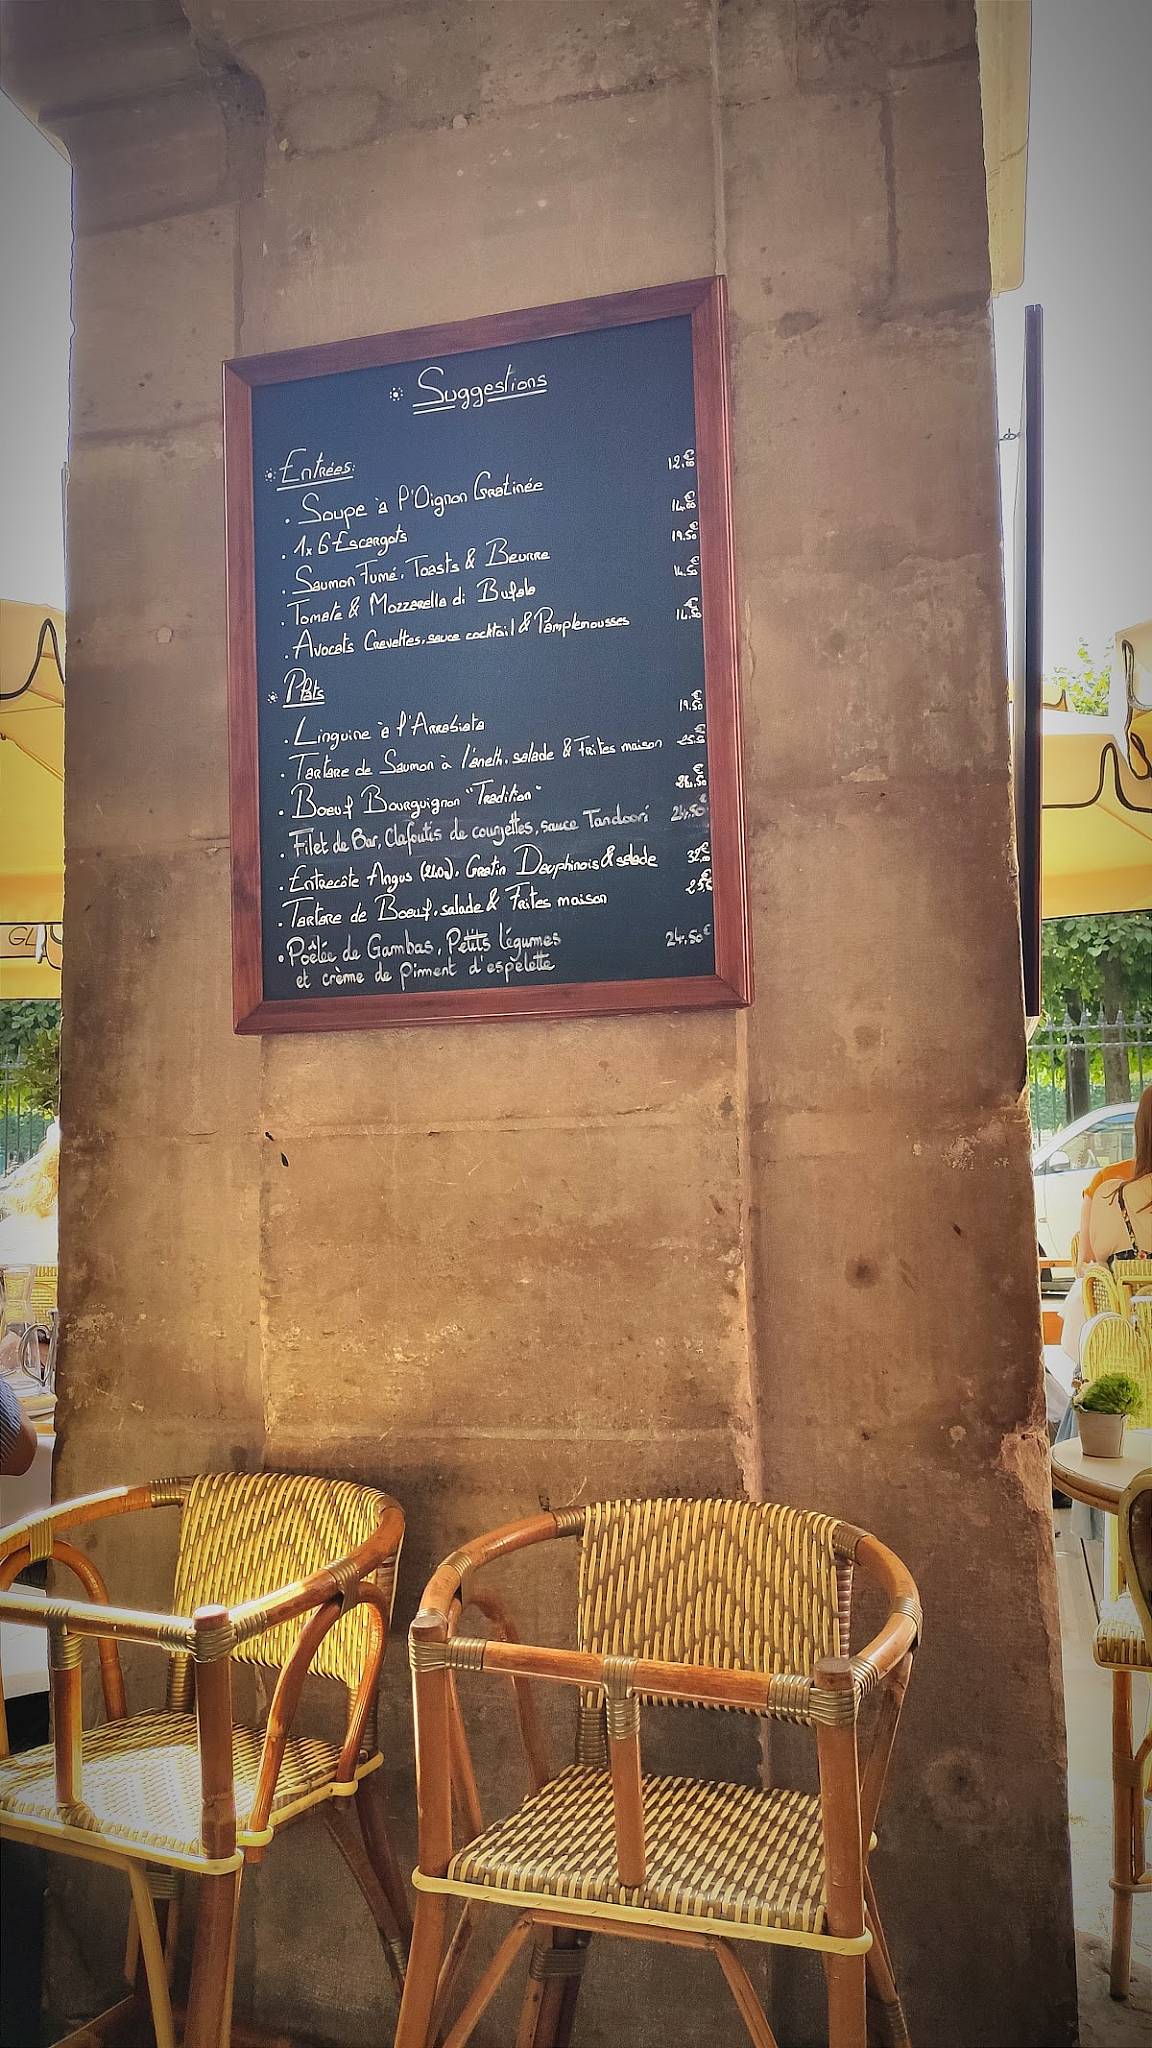 Suggestions
Entrées:
Soupe à l'Oignon Gratinée 12.00€
1x6 Escargots 14.00€
Saumon Fumé, Toasts & Beurre 19.50€
Tomate & Mozzarella di Bufala 14.50€
Avocats Crevettes, sauce cocktail & Pamplemousses 14.50€
Plats
Linguine à l'Arrabiata 19.50€
Tartare de Saumon à l'aneth, salade & Frites maison
Boeuf Bourguignon "Tradition"
Filet de Bar, Clafoutis de courgettes, sauce Tandoori 24.50€
Entrecôte Angus, Gratin Dauphinois & salade 32.00€
Tartare de Boeuf, salade & Frites maison 25€
Poêlée de Gambas, Petits légumes 24.50€
et crème de piment d'espelette